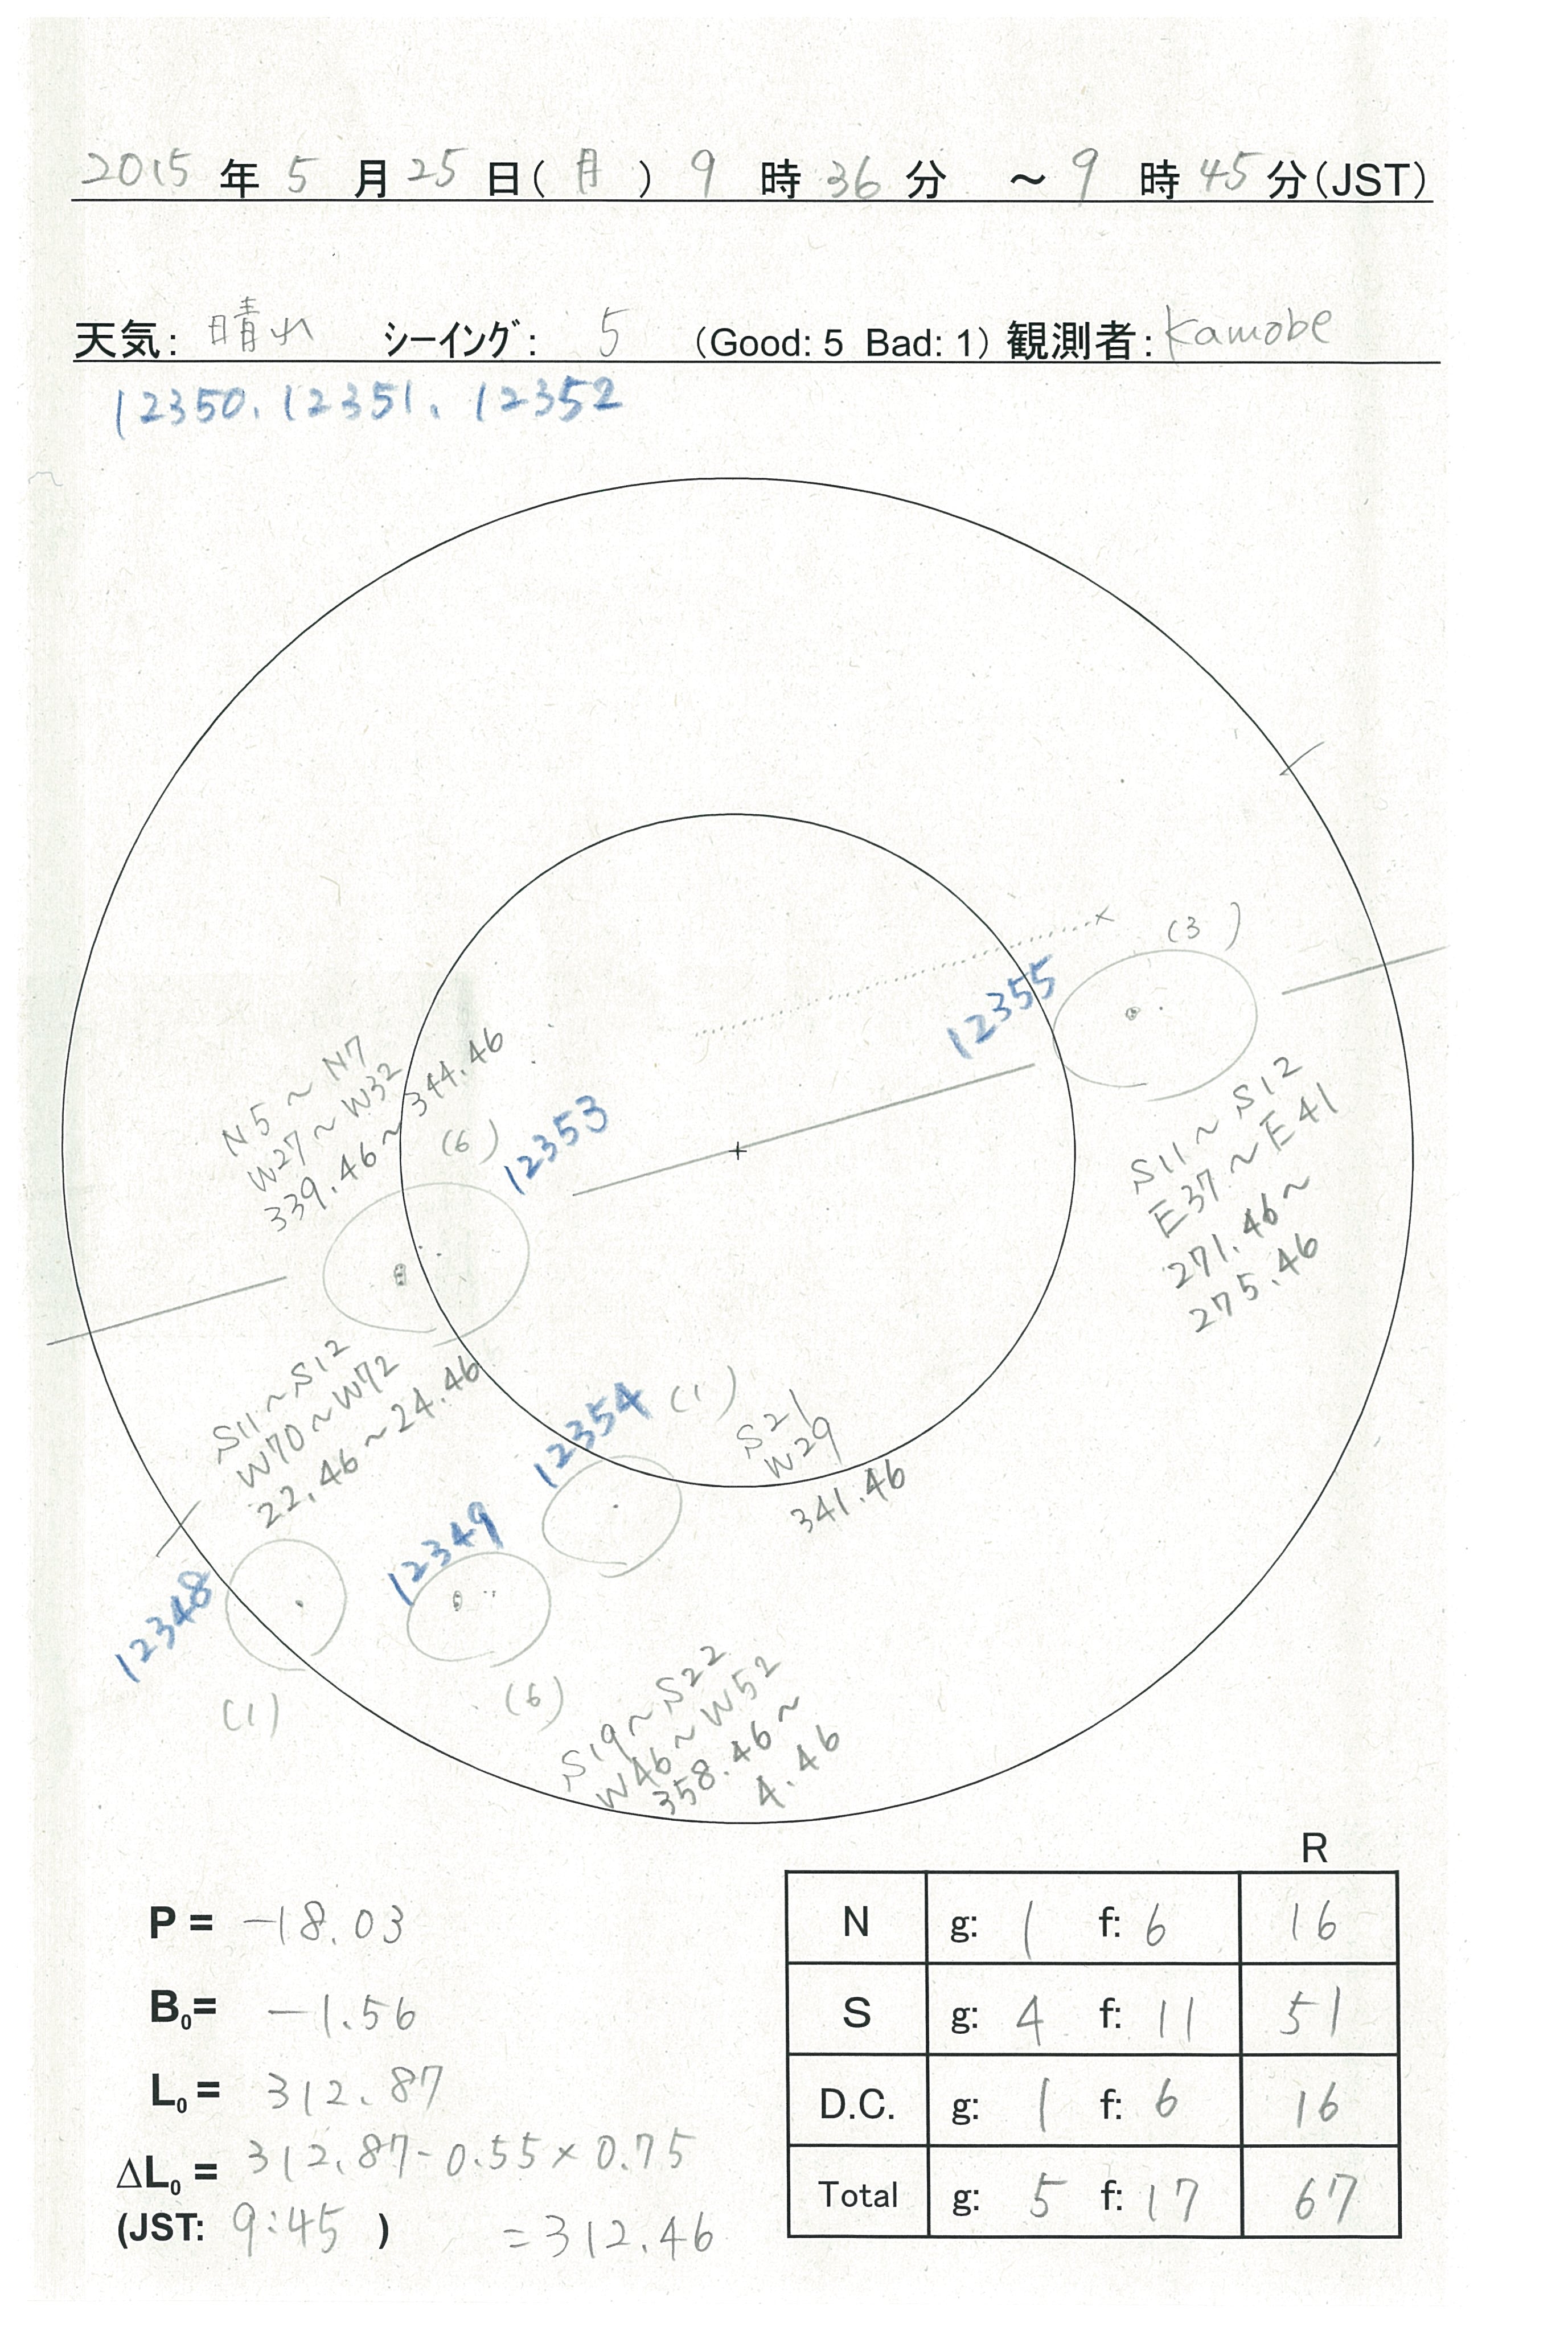 2015年5月25日(月) 9時36分 ～9時45分(JST)
天気: 晴れ シーイング: 5 (Good: 5 Bad: 1) 観測者: Kamobe
12350, 12351, 12352
(3)
12355
S11～S12
E37～E41
271.46～
275.46
N5～N7
W27～W32
339.46～344.46
(6)
12353
S11～S12
W70～W72
22.46～24.46
12348
(1)
12354
(1)
S21
W29
341.46
12349
(6)
S19～S22
W46～W52
358.46～
4.46
P = -18.03
B0= -1.56
L0= 312.87
ΔL0= 312.87-0.55×0.75
(JST: 9:45 ) =312.46
R
N g: 1 f: 6 16
S g: 4 f: 11 51
D.C. g: 1 f: 6 16
Total g: 5 f: 17 67